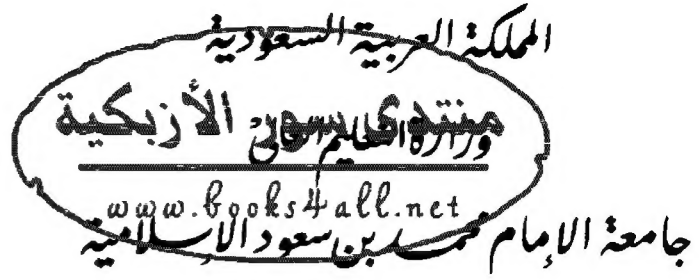 المملكة العربية السعودية
منتدى سور الأزبكية
وزارة التعليم العالي
www.books4all.net
جامعة الإمام محمد بن سعود الإسلامية